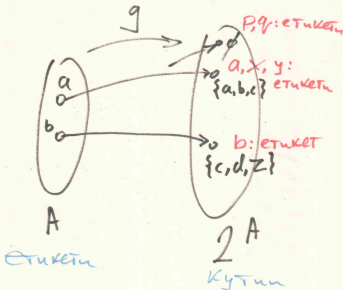 g
p, q: етикети
∅
a
a, x, y:
етикети
{a,b,c}
b
b: етикет
{c,d,z}
A
2^A
етикети
кутии